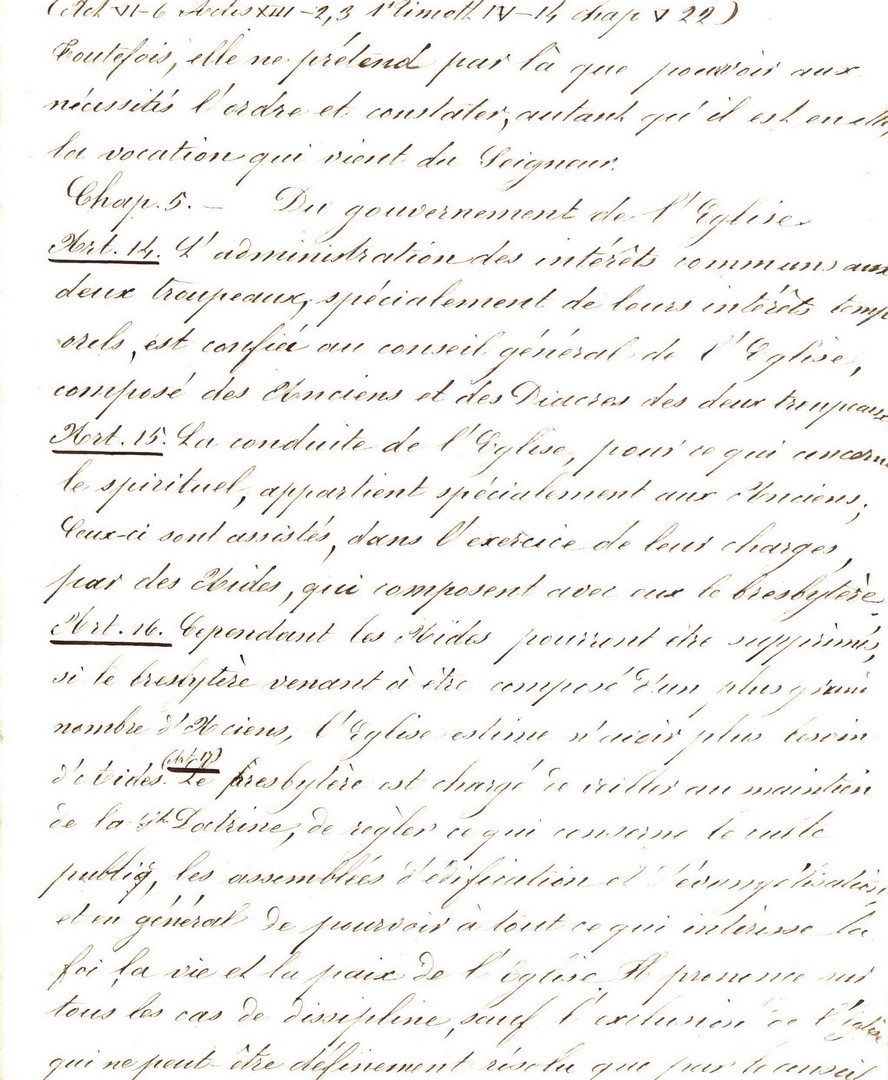 (Act VI-6 Actes XIII-2,3 1 Timoth IV-14 chap V 22)
Toutefois, elle ne prétend par là que pourvoir aux
nécessités l'ordre et constater, autant qu'il est en elle,
la vocation qui vient du Seigneur.
Chap. 5. - Du gouvernement de l'Eglise.
Art. 14. L'administration des intérêts communs aux
deux troupeaux, spécialement de leurs intérêts temp
orels, est confiée au conseil général de l'Eglise,
composé des Anciens et des Diacres des deux troupeaux
Art. 15. La conduite de l'Eglise, pour ce qui concerne
le spirituel, appartient spécialement aux Anciens;
Ceux-ci sont assistés, dans l'exercice de leur charges,
par des Aides, qui composent avec eux le bresbytère.
Art. 16. Cependant les Aides pourront être supprimés,
si le bresbytère venant à être composé d'un plus grand
nombre d'Aciens, l'Eglise estime n'avoir plus besoin
d'Aides. (Art. 17) Le presbytère est chargé de veiller au maintien
de la Ste Doctrine, de règler ce qui conserne le culte
public, les assemblées d'édification et d'évangélisation,
et en général de pourvoir à tout ce qui intéresse la
foi, la vie et la paix de l'Eglise. Il prononce sur
tous les cas de dissipline, sauf l'exclusion de l'Eglise
qui ne peut-être définement résolu que par le conseil